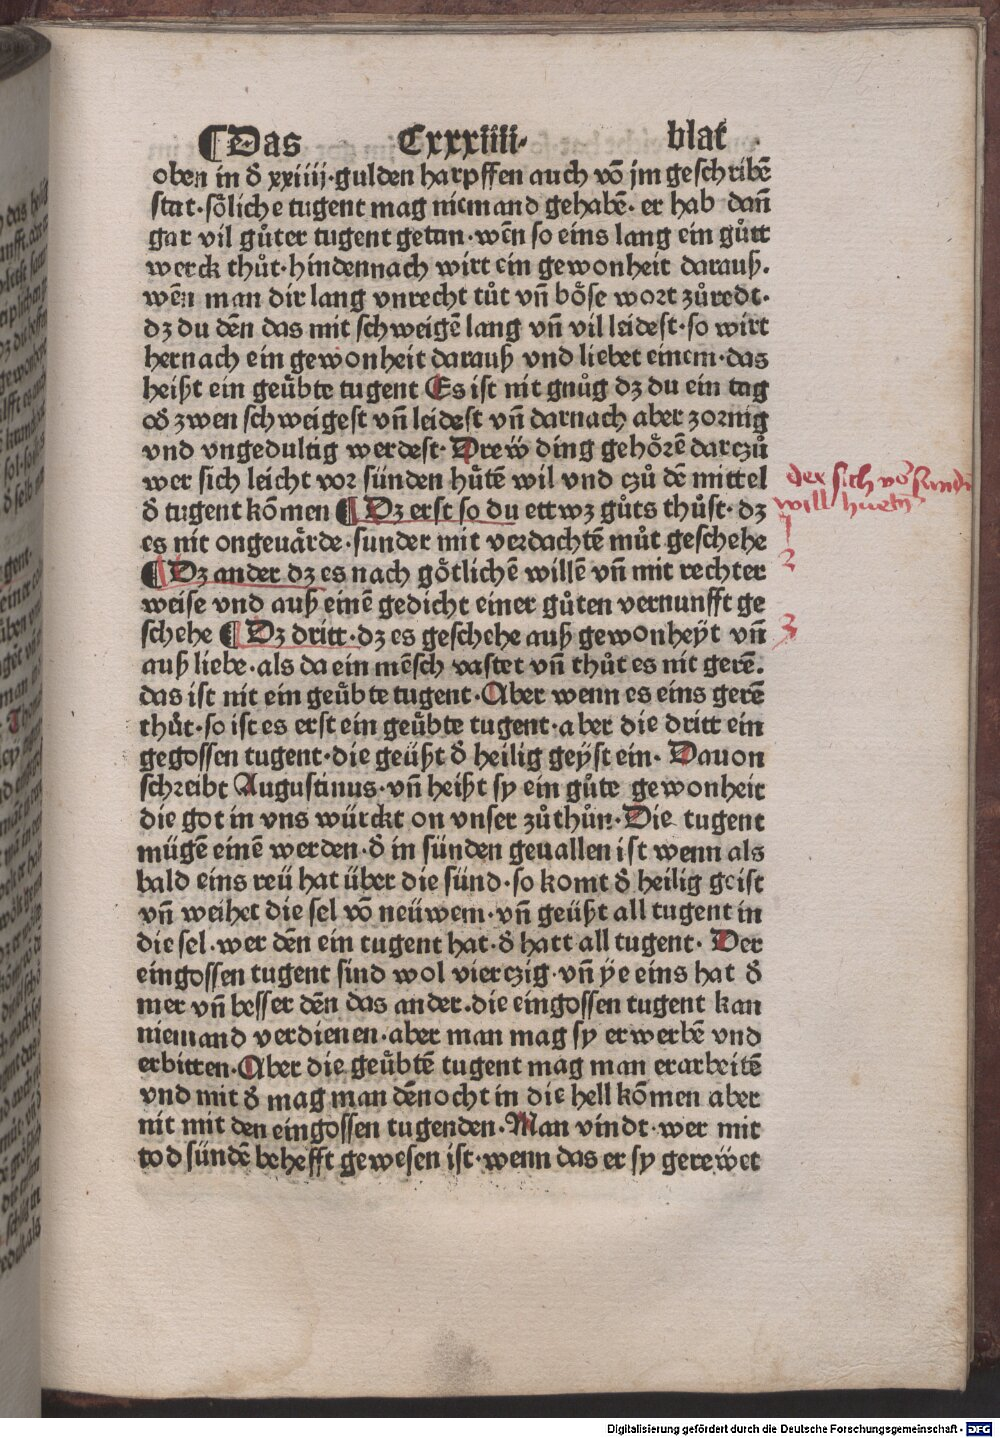 ¶Das Cxxxiiii· blat
oben in d̕ xxiiij·gulden harpffen auch võ jm geschribẽ
stat·söliche tugent mag niemand gehabẽ·er hab dañ
gar vil gůter tugent getan·wẽn so eins lang ein gůtt
werck thůt·hindennach wirt ein gewonheit darauß.
wẽn man dir lang vnrecht tůt vñ böse wort zůredt·
dz du dẽn das mit schweigẽ lang vñ vil leidest·so wirt
hernach ein gewonheit darauß vnd liebet einem·das
heißt ein geübte tugent Es ist nit gnůg dz du ein tag
od̕ zwen schweigest vñ leidest vñ darnach aber zornig
vnd vngedultig werdest·Drew̎ ding gehörẽ darczů
wer sich leicht vor sünden hůtẽ wil vnd czů dẽ mittel
d̕ tugent kõmen ¶Dz erst so du ettwz gůts thůst·dz
es nit ongeuärde·sunder mit verdachtẽ můt geschehe
¶Dz ander dz es nach götlichẽ willẽ vñ mit rechter
weise vnd auß einẽ gedicht einer gůten vernunfft ge
schehe ¶Dz dritt·dz es geschehe auß gewonheÿt vñ
auß liebe·als da ein mẽsch vastet vñ thůt es nit gerẽ.
das ist nit ein geübte tugent·Aber wenn es eins gerẽ
thůt·so ist es erst ein geübte tugent·aber die dritt ein
gegossen tugent·die geüßt d̕ heilig geÿst ein·Dauon
schreibt Augustinus·vñ heißt sy ein gůte gewonheit
die got in vns würckt on vnser zůthůn·Die tugent
mügẽ einẽ werden·d̕ in sünden geuallen ist wenn als
bald eins reü hat über die sünd·so komt d̕ heilig geist
vñ weihet die sel võ neüwem·vñ geüßt all tugent in
die sel·wer dẽn ein tugent hat·d̕ hatt all tugent·Der
eingossen tugent sind wol vierczig·vñ ÿe eins hat d̕
mer vñ besser dẽn das ander.die eingossen tugent kan
niemand verdienen·aber man mag sy erwerbẽ vnd
erbitten·Aber die geübtẽ tugent mag man erarbeitẽ
vnd mit d̕ mag man dẽnocht in die hell kõmen aber
nit mit den eingossen tugenden·Man vindt·wer mit
tod sündẽ behefft gewesen ist·wenn das er sy gerew̎et
der sich võ sundẽ
will huetẽ
1
2
3
Digitalisierung gefördert durch die Deutsche Forschungsgemeinschaft - DFG